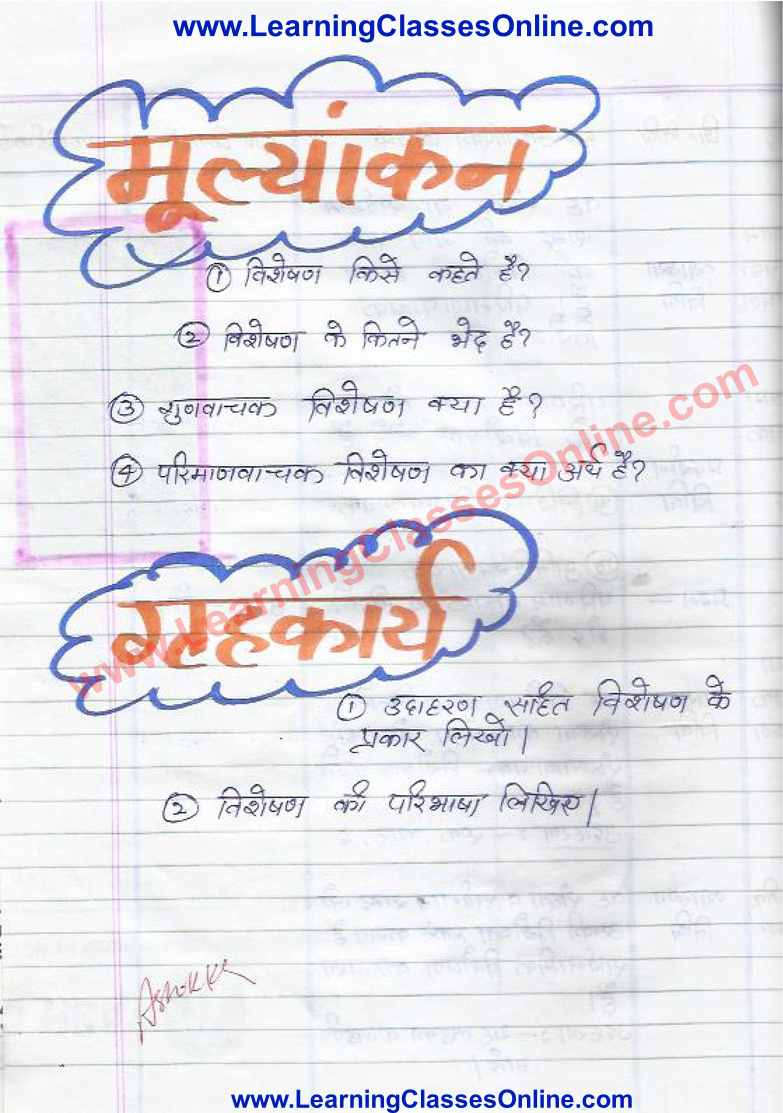 www.LearningClassesOnline.com
मूल्यांकन
① विशेषण किसे कहते है?
② विशेषण के कितने भेद है?
③ गुणवाचक विशेषण क्या है?
④ परिमाणवाचक विशेषण का क्या अर्थ है?
www.LearningClassesOnline.com
ग्रहकार्य
① उदाहरण सहित विशेषण के
प्रकार लिखो।
② विशेषण की परिभाषा लिखिए।
www.LearningClassesOnline.com